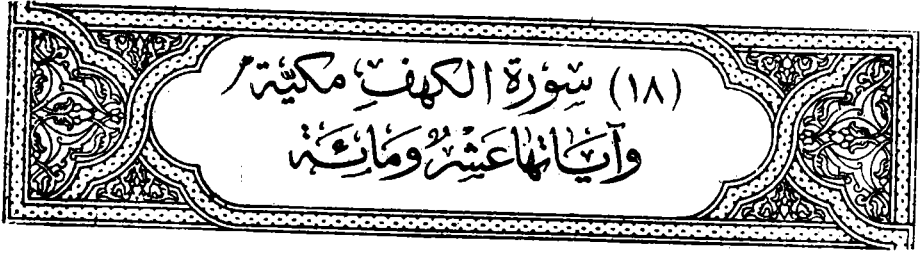 (١٨) سُورَة الكهفِ مكيّة
وآيَاتها عَشْرٌ وَمَائِة